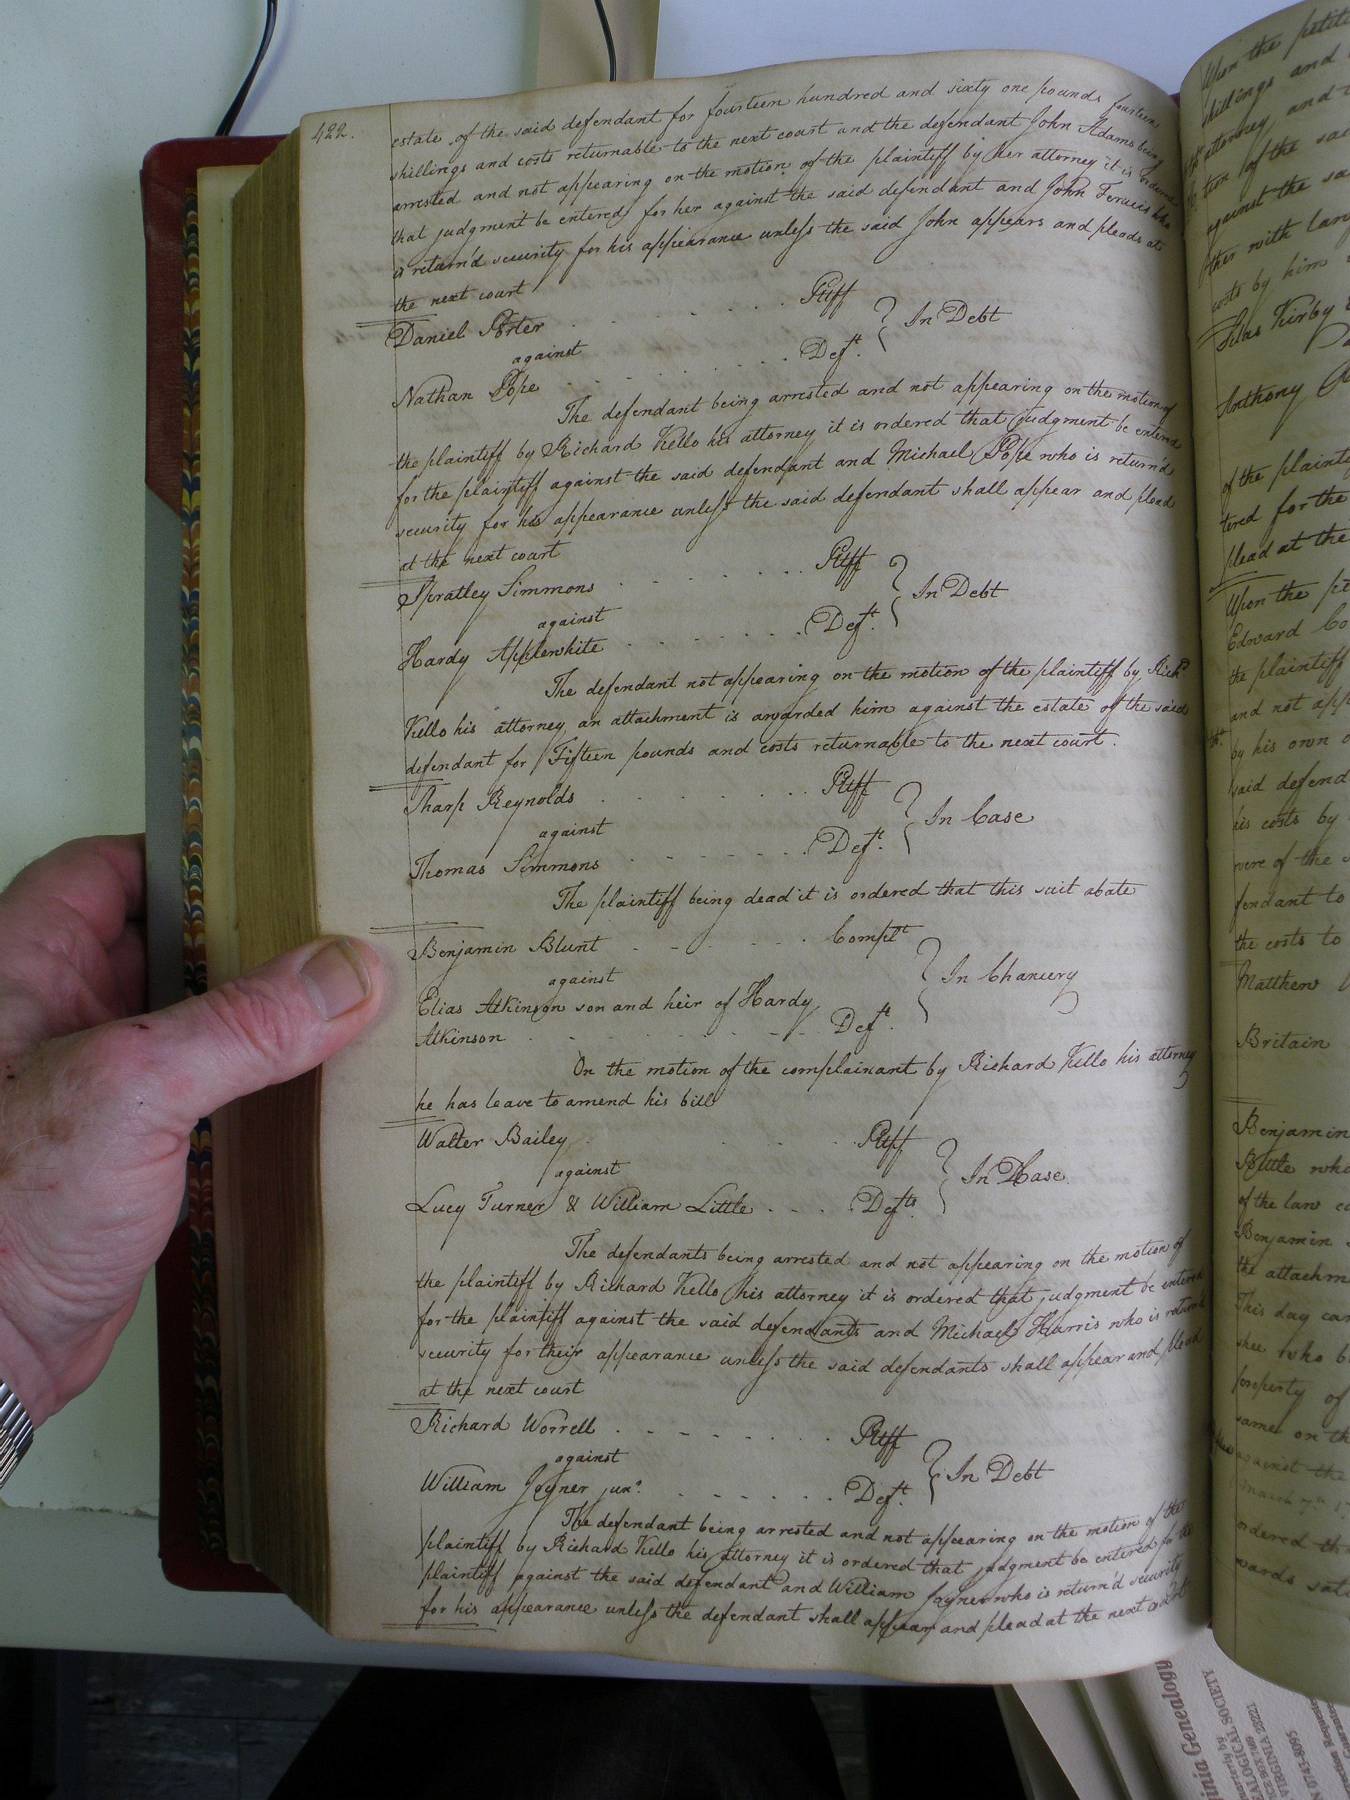 422.
estate of the said defendant for fourteen hundred and sixty one pounds fourteen
shillings and costs returnable to the next court and the defendant John Adams being
arrested and not appearing on the motion of the plaintiff by her attorney it is ordered
that judgment be entered for her against the said defendant and John who
is return'd security for his appearance unless the said John appears and pleads at
the next court
Daniel Porter . . . . Pltff
against } In Debt
Nathan Pope . . . . Deft.
The defendant being arrested and not appearing on the motion of
the plaintiff by Richard Kello his attorney it is ordered that judgment be entered
for the plaintiff against the said defendant and Michael Pope who is return'd
security for his appearance unless the said defendant shall appear and plead
at the next court
Spratley Simmons . . . . Pltff
against } In Debt
Hardy Applewhite . . . . Deft.
The defendant not appearing on the motion of the plaintiff by Richd
Kello his attorney an attachment is awarded him against the estate of the said
defendant for Fifteen pounds and costs returnable to the next court.
Sharp Reynolds . . . . Pltff
against } In Case
Thomas Simmons . . . . Deft.
The plaintiff being dead it is ordered that this suit abate
Benjamin Blunt . . . . Complt
against } In Chancery
Elias Atkinson son and heir of Hardy
Atkinson . . . . Deft.
On the motion of the complainant by Richard Kello his attorney
he has leave to amend his bill
Walter Bailey . . . . Pltff
against } In Case
Lucy Turner & William Little . . . Defts.
The defendants being arrested and not appearing on the motion of
the plaintiff by Richard Kello his attorney it is ordered that judgment be entered
for the plaintiff against the said defendants and Michael Harris who is return'd
security for their appearance unless the said defendants shall appear and plead
at the next court
Richard Worrell . . . . Pltff
against } In Debt
William Joyner junr. . . . . Deft.
The defendant being arrested and not appearing on the motion of the
plaintiff by Richard Kello his attorney it is ordered that judgment be entered for the
plaintiff against the said defendant and William Joyner who is return'd security
for his appearance unless the defendant shall appear and plead at the next court
Upon the petit
shillings and
attorney and
tion of the sa
against the sa
ther with law
costs by him
Silas Kirby
Anthony
of the plainti
tered for the
plead at the
Upon the pe
Edward Co
the plaintiff
and not app
by his own
said defend
his costs by
were of the
fendant to
the costs to
Matthew
Britain
Benjamin
Bittle who
of the law
Benjamin
the attachm
This day ca
property of
same on th
against the
ordered th
wards sat
inia Genealogy
SOCIETY
VIRGINIA 23221